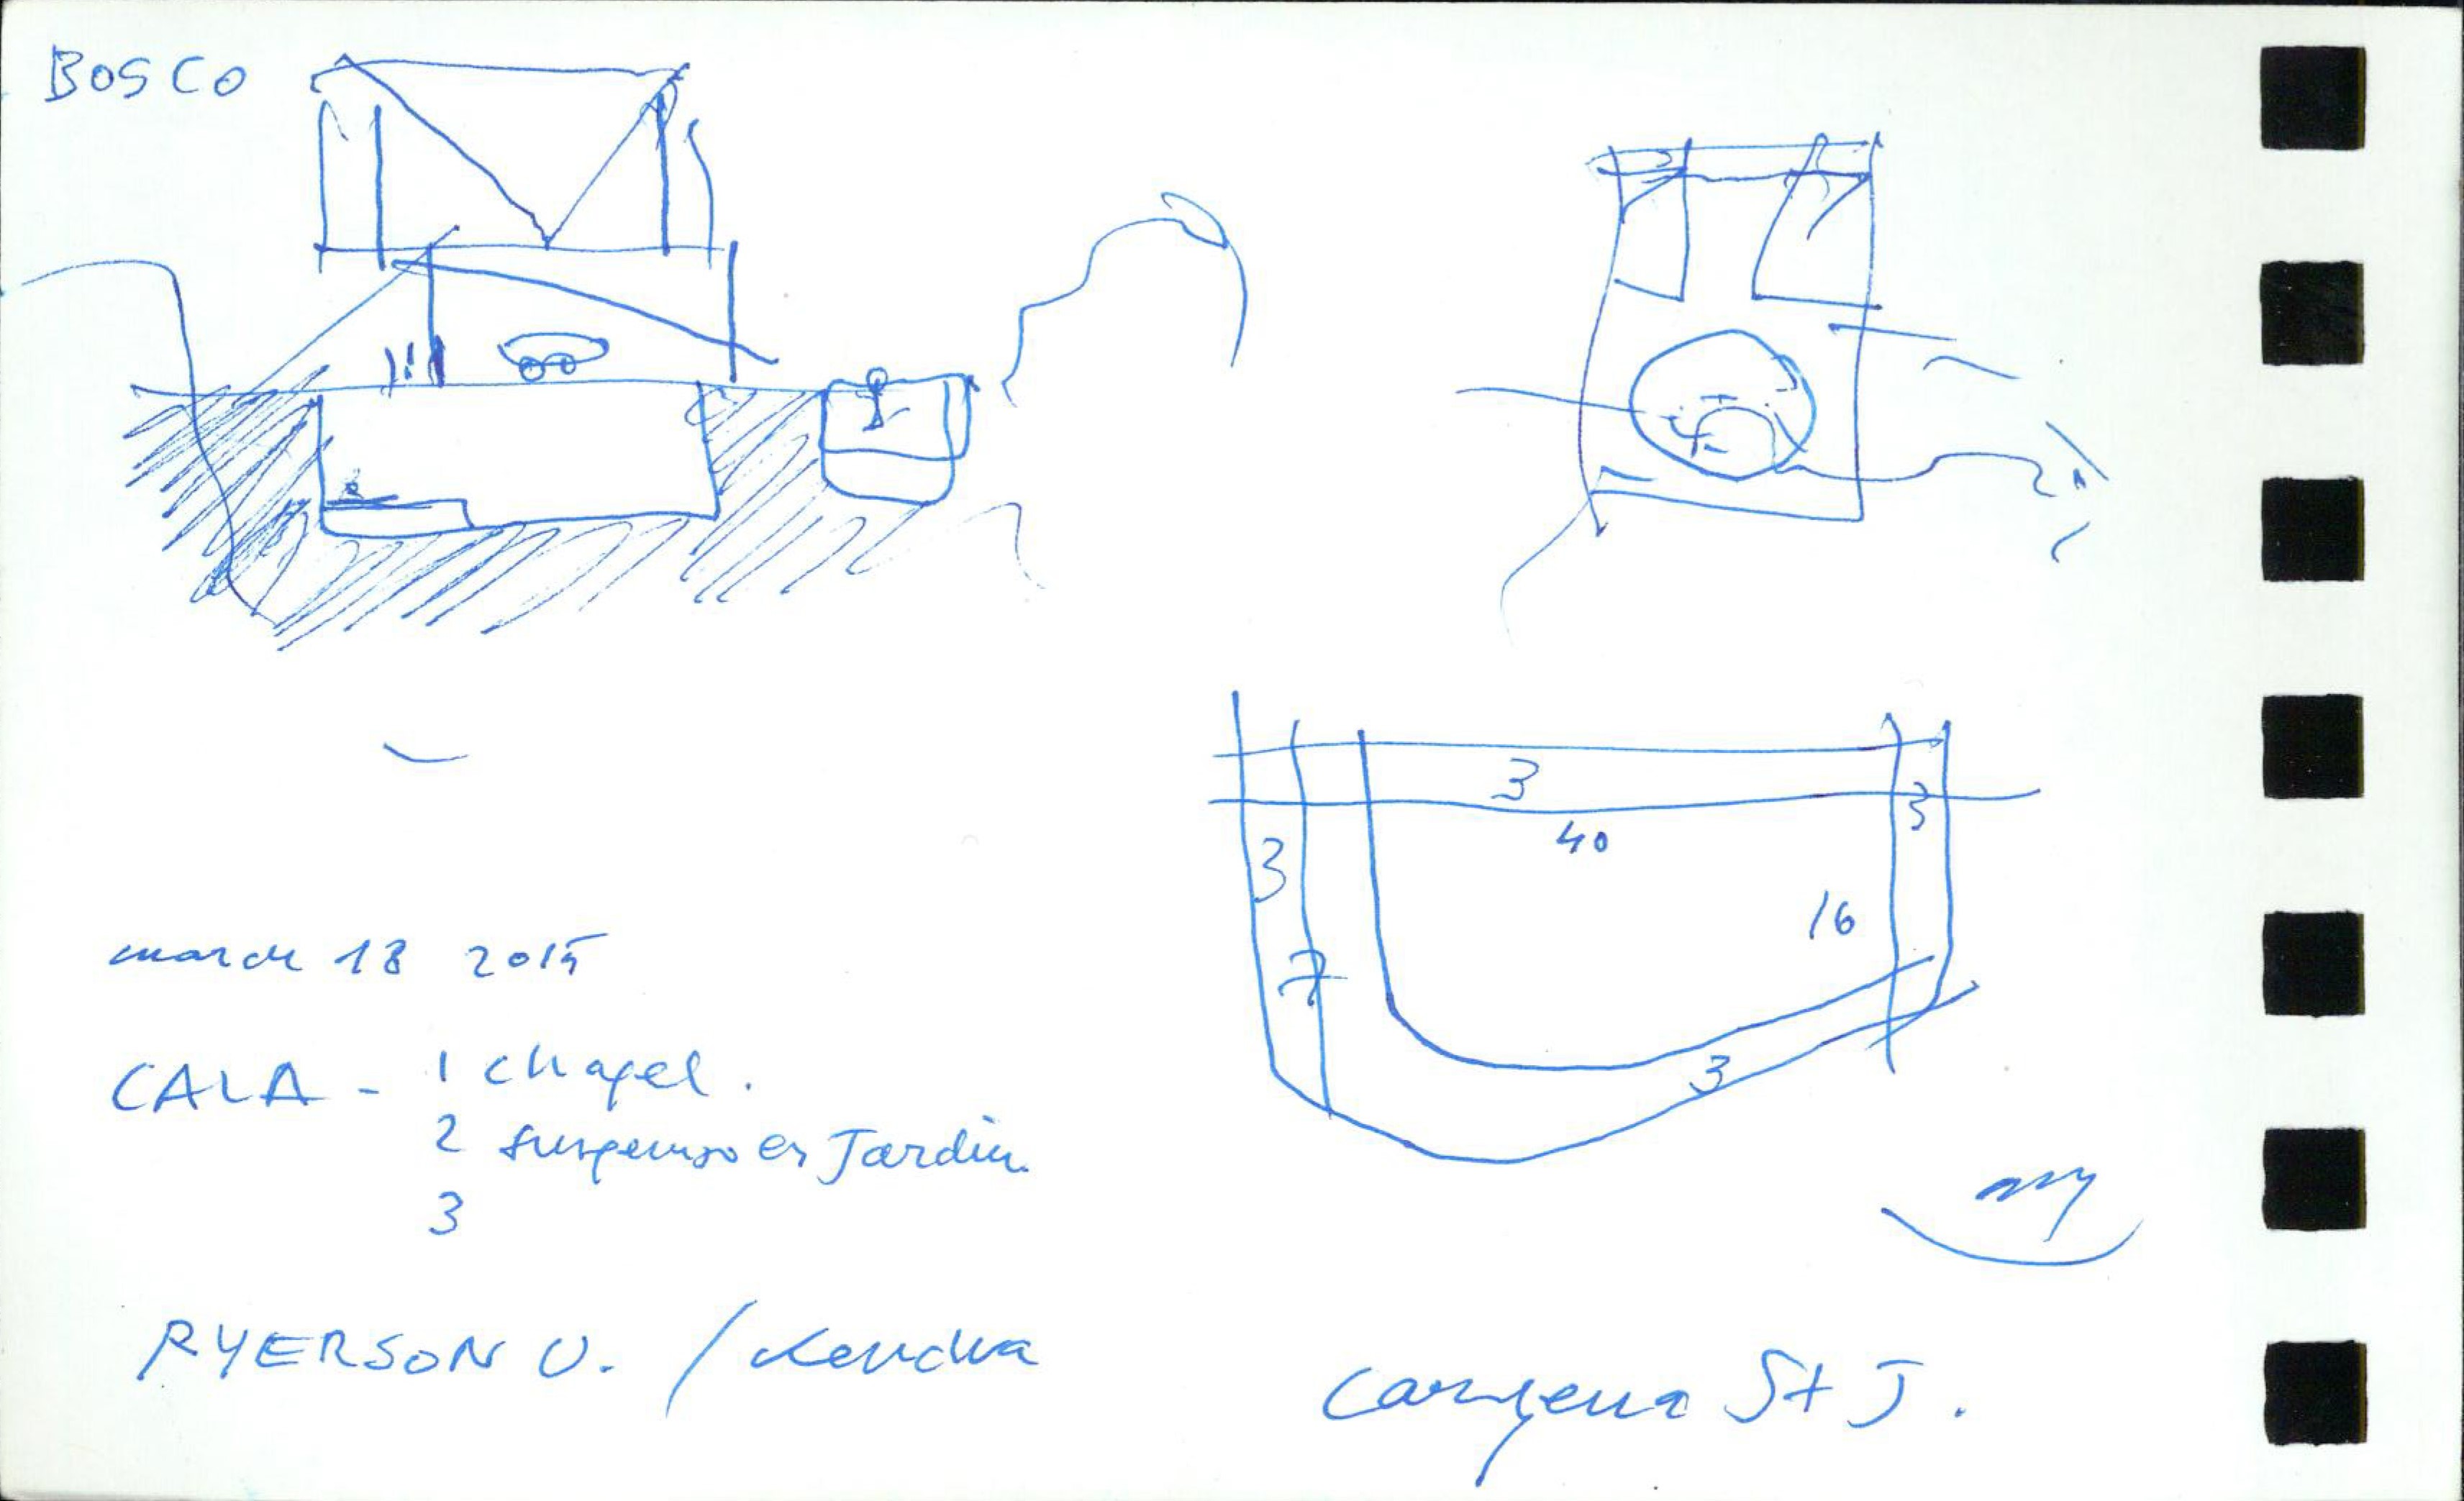 BOSCO
3
40
3
3
16
7
3
march 18 2015
CALA - 1 chapel.
2 suspenso en Jardin.
3
RYERSON U. / Kendra
St J.